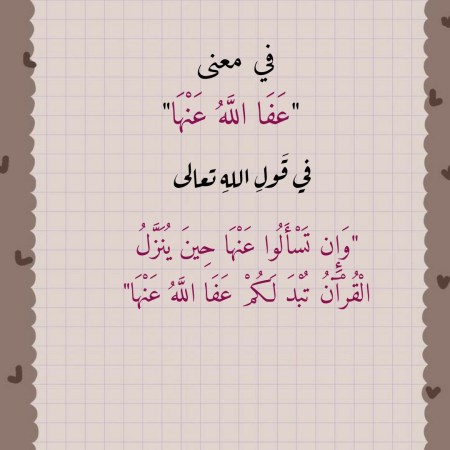 في معنى
"عَفَا اللَّهُ عَنْهَا"
في قَولِ اللهِ تعالى
"وَإِن تَسْأَلُوا عَنْهَا حِينَ يُنَزَّلُ
الْقُرْآنُ تُبْدَ لَكُمْ عَفَا اللَّهُ عَنْهَا"